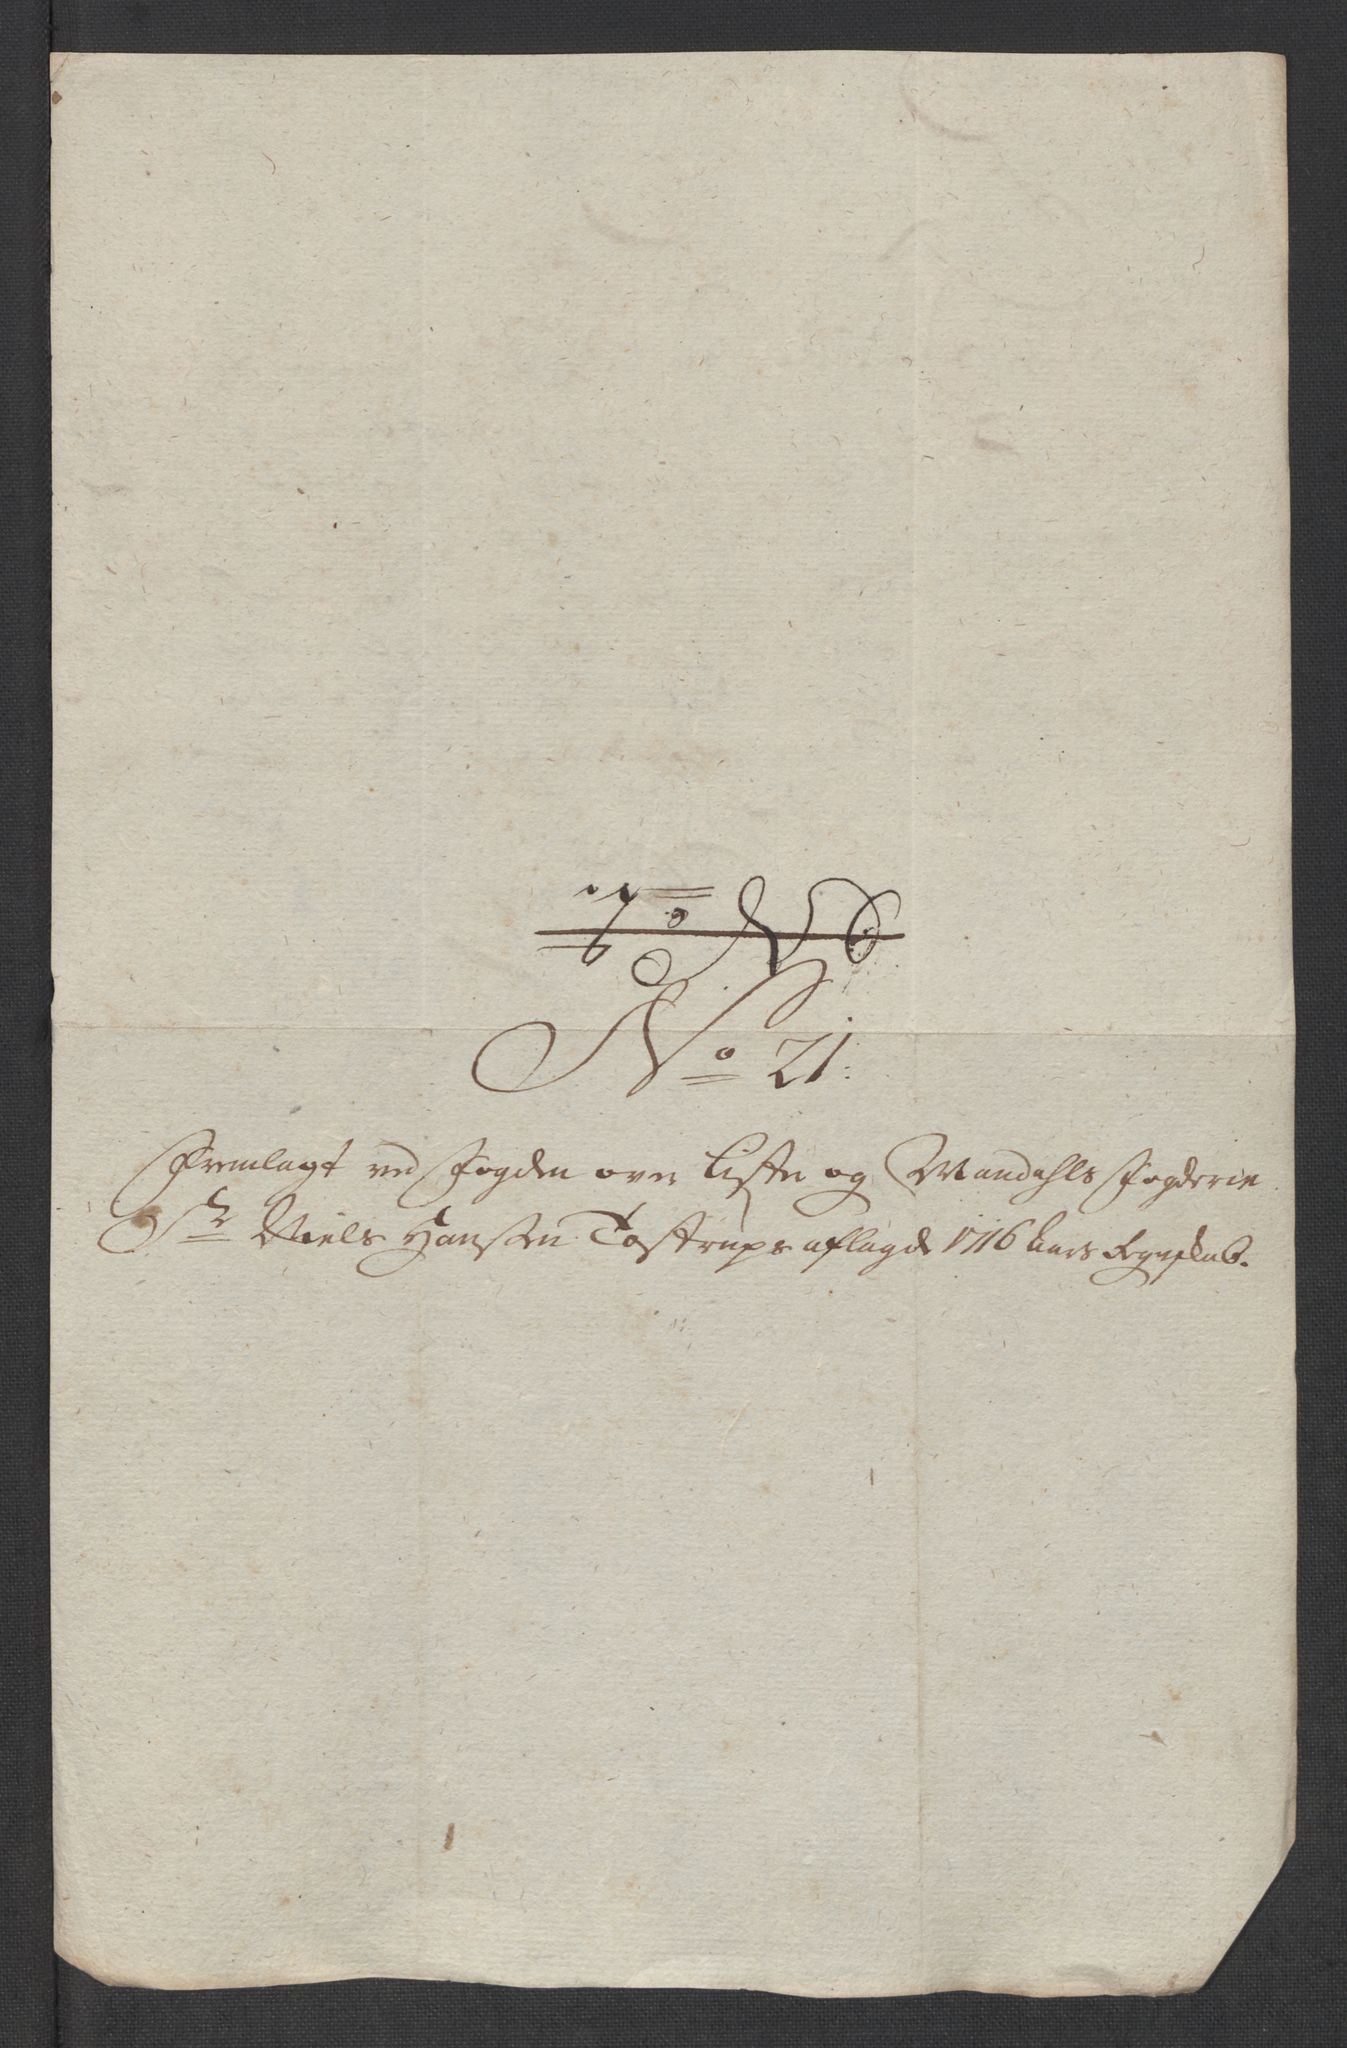 No 21:
Fremlagt ved Fogden over Lister og Mandahls Fogderie
Sr Niels Hansen Tostrups aflagde 1716 Aars Regnskab.